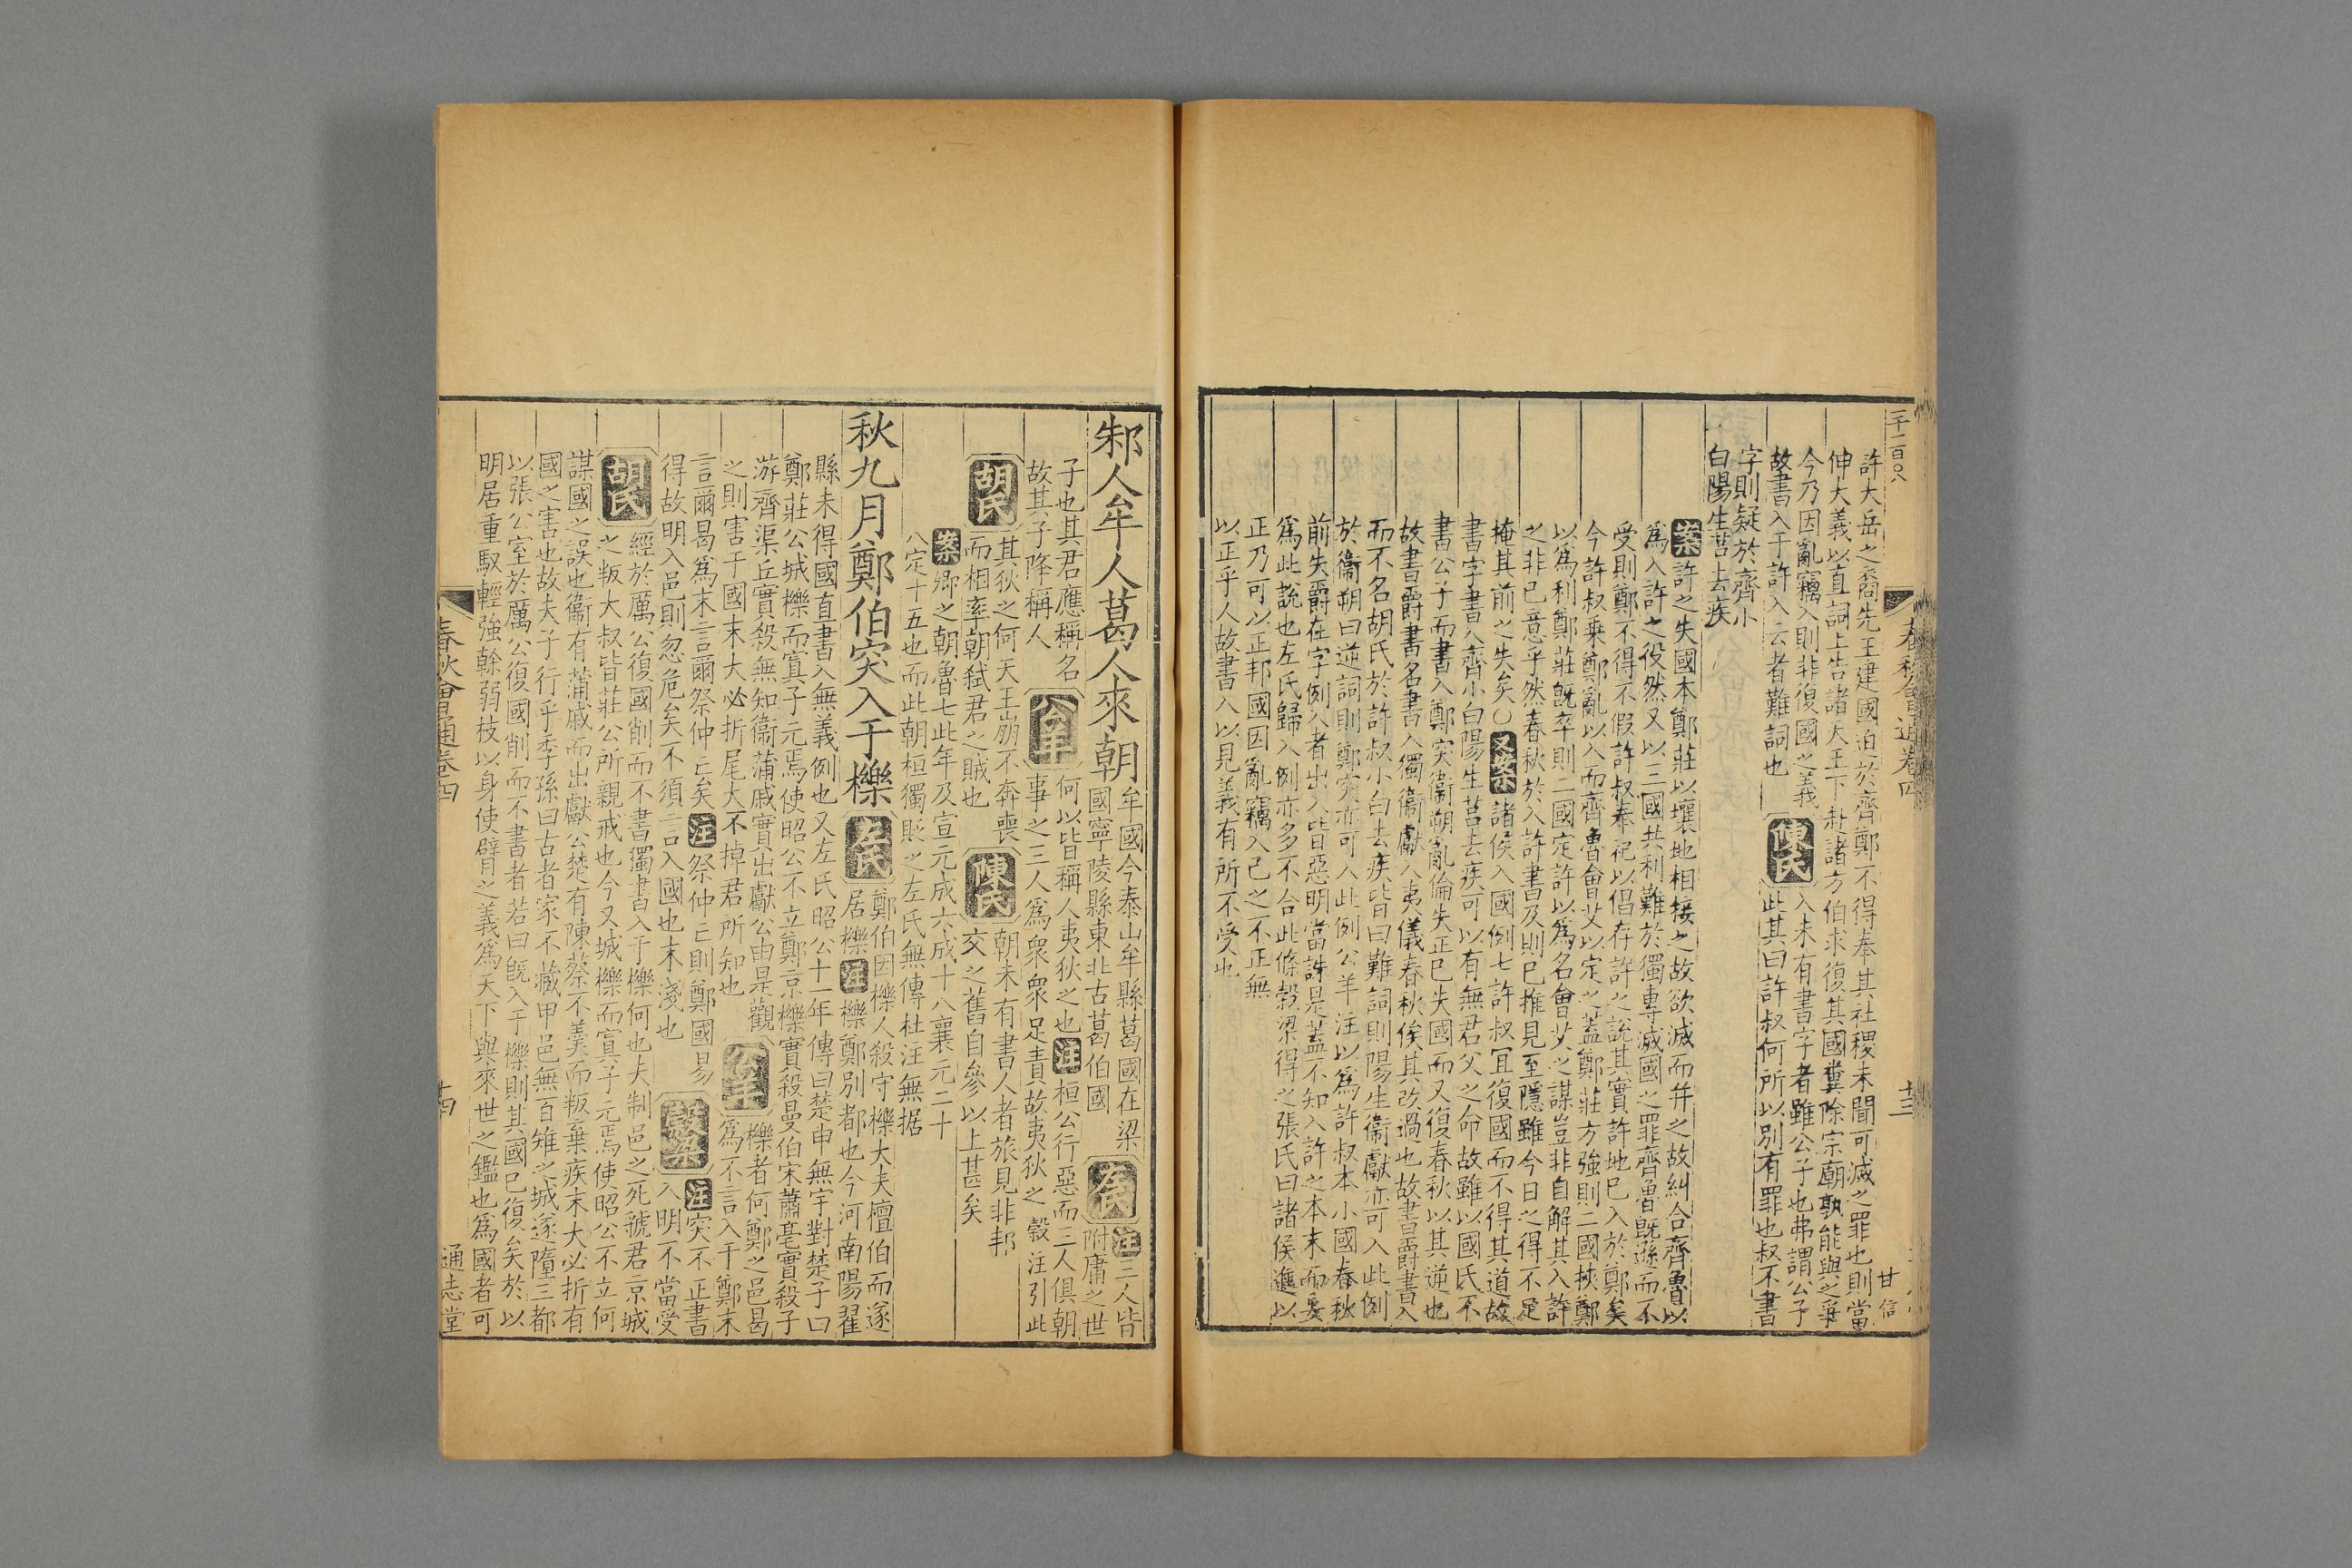 二千一百〇八
春秋會通卷四
甘信
許大岳之裔先王建國迫於齊鄭不得奉其社稷未聞可滅之罪也則當
伸大義以直詞上告諸天王下赴諸方伯求復其國糞除宗廟孰能與之爭
今乃因亂竊入則非復國之義
故書入于許入云者難詞也
陳氏
入未有書字者雖公子也弗謂公子
此其曰許叔何所以別有罪也叔不書
字則疑於齊小
白陽生莒去疾
案許之失國本鄭莊以壤地相接之故欲滅而并之故糾合齊魯以
為入許之役然又以三國共利難於獨專滅國之罪齊魯既遜而不
受則鄭不得不假許叔奉祀以倡存許之說其實許地已入於鄭矣
今許叔乘鄭亂以入而齊魯會艾以定之蓋鄭莊方強則二國挾鄭
以為利鄭莊既卒則二國定許以為名會艾之謀豈非自解其入許
之非已意乎然春秋於入許書及則已推見至隱雖今日之得不足
掩其前之失矣〇又案諸侯入國例七許叔宜復國而不得其道故
書字書入齊小白陽生莒去疾可以有無君父之命故雖以國氏不
書公子而書入鄭突衞朔亂倫失正已失國而又復春秋以其逆也
故書爵書名書入獨衞獻入夷儀春秋俟其改過也故書爵書入
而不名胡氏於許叔小白去疾皆曰難詞則陽生衞獻亦可入此例
於衞朔曰逆詞則鄭突亦可入此例公羊注以為許叔本小國春秋
前失爵在字例入者出入皆惡明當誅是蓋不知入許之本末而妄
為此說也左氏歸入例亦多不合此條穀梁得之張氏曰諸侯進以
正乃可以正邦國因亂竊入己之不正無
以正乎人故書入以見義有所不受也
邾人牟人葛人來朝
牟國今泰山牟縣葛國在梁
國寧陵縣東北古葛伯國
左氏
注三人皆
附庸之世
子也其君應稱名
故其子降稱人
公羊
何以皆稱人夷狄之也注桓公行惡而三人俱朝
事之三人為衆衆足責故夷狄之 穀注引此
胡氏
其狄之何天王崩不奔喪
而相率朝弒君之賊也
陳氏
朝未有書人者旅見非邦
交之舊自參以上甚矣
案鄉之朝魯七此年及宣元成六成十八襄元二十
八定十五也而此朝桓獨貶之左氏無傳杜注無据
秋九月鄭伯突入于櫟
左氏
鄭伯因櫟人殺守櫟大夫檀伯而遂
居櫟注櫟鄭別都也今河南陽翟
縣未得國直書入無義例也又左氏昭公十一年傳曰楚申無宇對楚子曰
鄭莊公城櫟而寘子元焉使昭公不立鄭京櫟實殺曼伯宋蕭亳實殺子
游齊渠丘實殺無知衞蒲戚實出獻公由是觀
之則害于國末大必折尾大不掉君所知也
公羊
櫟者何鄭之邑曷
為不言入于鄭末
言爾曷為末言爾祭仲亡矣注祭仲亡則鄭國易
得故明入邑則忽危矣不須言入國也末淺也
穀梁
注突不正書
入明不當受
胡氏
經於厲公復國削而不書獨書入于櫟何也夫制邑之死虢君京城
之叛大叔皆莊公所親戒也今又城櫟而寘子元焉使昭公不立何
謀國之誤也衞有蒲戚而出獻公楚有陳蔡不羹而叛棄疾末大必折有
國之害也故夫子行乎季孫曰古者家不藏甲邑無百雉之城遂隳三都
以張公室於厲公復國削而不書者若曰既入于櫟則其國已復矣於以
明居重馭輕強榦弱枝以身使臂之義為天下與來世之鑑也為國者可
春秋會通卷四
十四
通志堂